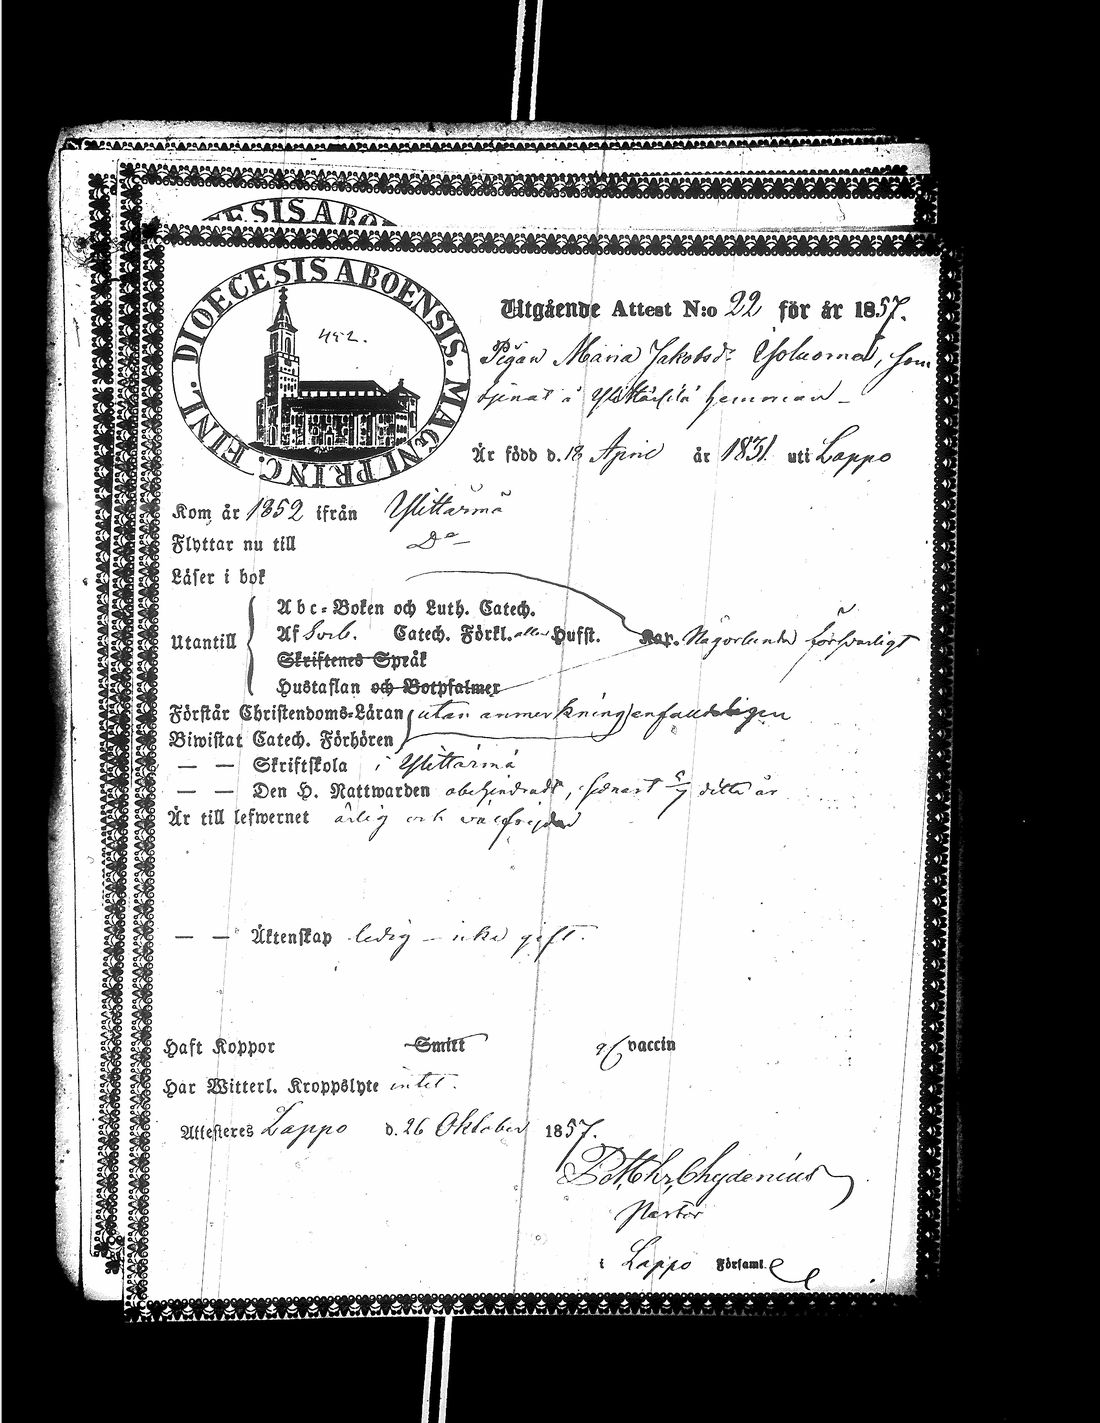 ECESIS ABO
DIOECESIS ABOENSIS. MAGNI PRINC. FINL.
452.
Utgående Attest N:o 22 för år 1857.
Pigan Maria Jakobsdr Isoluoma, som
tjenat å hemman
Är född d. 18 April år 1831 uti Lappo
Kom år 1852 ifrån Ylihärmä
Flyttar nu till Do
Läser i bok
Abc-Boken och Luth. Catech.
Utantill Af Sveb. Catech. Förkl. Husst. Kap. Någorlunda försvarligt
Skriftenes Språk
Hustaflan och Botpsalmer
Förstår Christendoms-Läran (utan anmerkning) enfaldeligen
Biwistat Catech. Förhören
— — Skriftskola i Ylihärmä
— — Den H. Nattwarden obehindradt, senast detta år
Är till lefwernet ärlig och välfrejdad
— — Äktenskap ledig – icke gift.
Haft Koppor Smitt vaccin
Har Witterl. Kroppslyte intet.
Attesteres Lappo d. 26 Oktober 1857.
Chydenius
Pastor
i Lappo Församl.